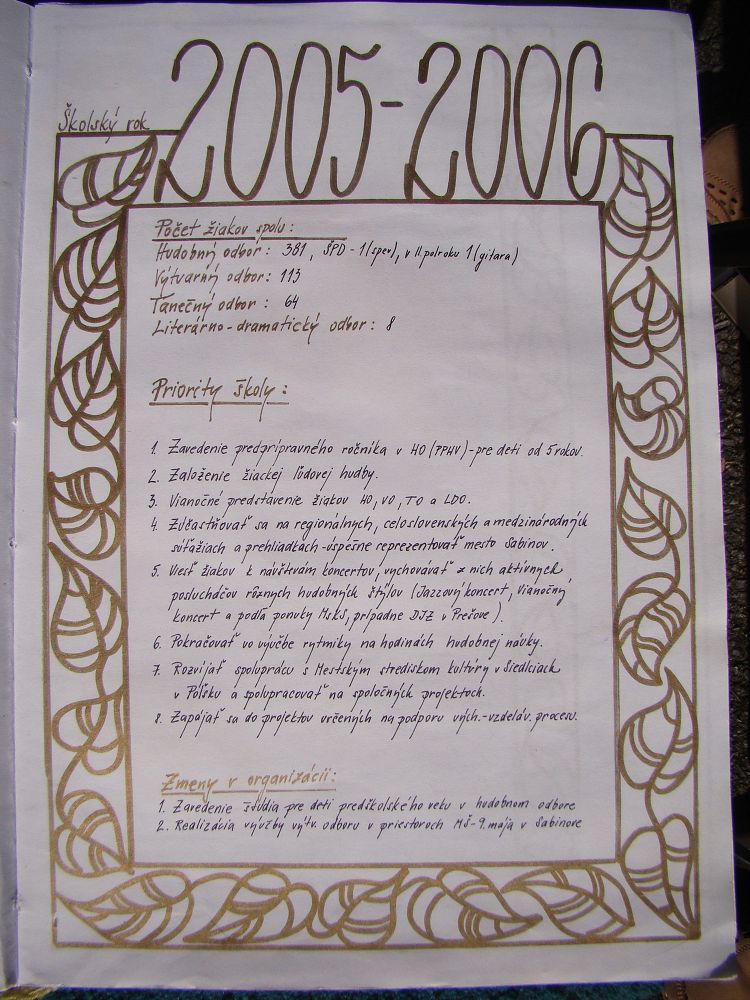 Školský rok 2005-2006
Počet žiakov spolu:
Hudobný odbor: 381, ŠPD - 1(spev), v II.polroku 1(gitara)
Výtvarný odbor: 113
Tanečný odbor: 64
Literárno-dramatický odbor: 8
Priority školy:
1. Zavedenie predprípravného ročníka v HO (PPHV)-pre deti od 5 rokov.
2. Založenie žiackej ľudovej hudby.
3. Vianočné predstavenie žiakov HO, VO, TO a LDO.
4. Zúčastňovať sa na regionálnych, celoslovenských a medzinárodných
súťažiach a prehliadkach-úspešne reprezentovať mesto Sabinov.
5. Viesť žiakov k návštevám koncertov, vychovávať z nich aktívnych
poslucháčov rôznych hudobných štýlov (Jazzový koncert, Vianočný
koncert a podľa ponuky MsKS, prípadne DJZ v Prešove).
6. Pokračovať vo výučbe rytmiky na hodinách hudobnej náuky.
7. Rozvíjať spoluprácu s Mestským strediskom kultúry v Siedlciach
v Poľsku a spolupracovať na spoločných projektoch.
8. Zapájať sa do projektov určených na podporu vých.-vzdeláv. procesu.
Zmeny v organizácii:
1. Zavedenie štúdia pre deti predškolského veku v hudobnom odbore
2. Realizácia výučby výtv. odboru v priestoroch MŠ-9.mája v Sabinove